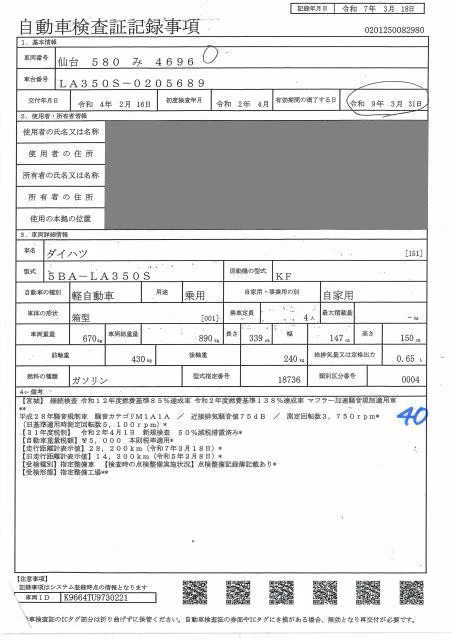 記録年月日 令和 7年 3月 18日
自動車検査証記録事項
0201250082980
1. 基本情報
車両番号 仙台 580 み 4696
車台番号 LA350S-0205689
交付年月日 令和 4年 2月 16日 初度検査年月 令和 2年 4月 有効期間の満了する日 令和 9年 3月 31日
2. 使用者・所有者情報
使用者の氏名又は名称
使用者の住所
所有者の氏名又は名称
所有者の住所
使用の本拠の位置
3. 車両詳細情報
車名 ダイハツ [151]
型式 5BA-LA350S 原動機の型式 KF
自動車の種別 軽自動車 用途 乗用 自家用・事業用の別 自家用
車体の形状 箱型 [001] 乗車定員 4人 最大積載量 -kg
車両重量 670kg 車両総重量 890kg 長さ 339cm 幅 147cm 高さ 150cm
前軸重 430kg 後軸重 240kg 総排気量又は定格出力 0.65 L
燃料の種類 ガソリン 型式指定番号 18736 類別区分番号 0004
4. 備考
【宮城】 継続検査 令和12年度燃費基準85%達成車 令和2年度燃費基準138%達成車 マフラー加速騒音規制適用車
**
平成28年騒音規制車 騒音カテゴリM1A1A / 近接排気騒音値75dB / 測定回転数3,750rpm*
(旧基準適用時測定回転数5,100rpm)*
【31年度税制】 令和2年4月1日 新規検査 50%減税措置済み*
【自動車重量税額】¥5,000 本則税率適用*
【走行距離計表示値】28,200km(令和7年3月18日)*
【旧走行距離計表示値】14,300km(令和5年3月8日)*
【受検種別】指定整備車 【検査時の点検整備実施状況】点検整備記録簿記載あり*
【受検形態】指定整備工場**
40
【注意事項】
記録事項はシステム登録時点の情報となります
車両ID K9664TU9730221
車検査証のICタグ部分は折り曲げずに保管ください。自動車検査証の券面やICタグにき損がある場合、無効となり再交付が必要です。